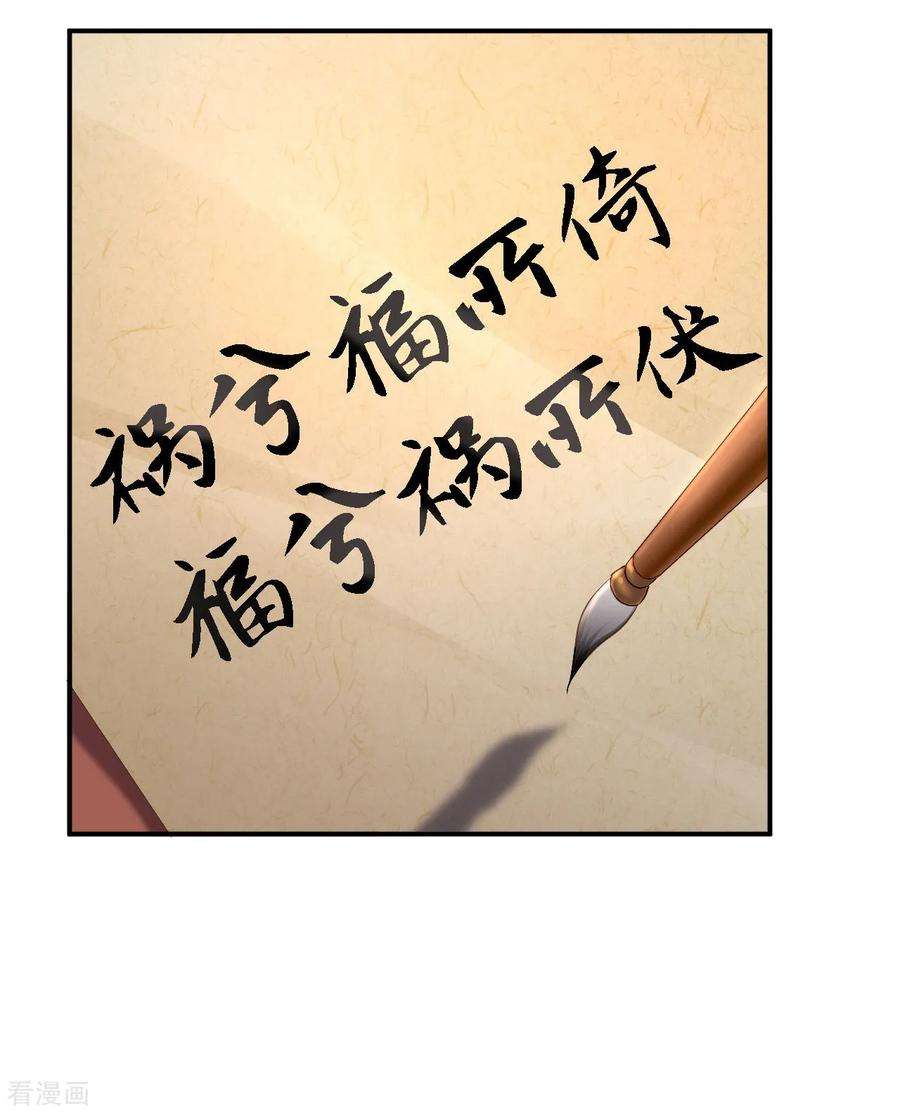 祸兮福所倚
福兮祸所伏
看漫画